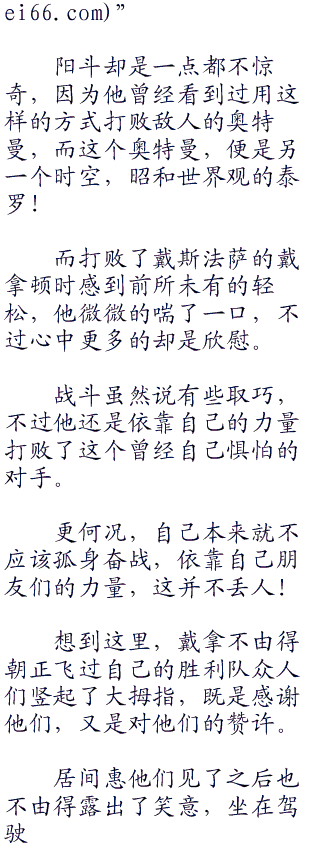 ei66.com)”
阳斗却是一点都不惊
奇，因为他曾经看到过用这
样的方式打败敌人的奥特
曼，而这个奥特曼，便是另
一个时空，昭和世界观的泰
罗！
而打败了戴斯法萨的戴
拿顿时感到前所未有的轻
松，他微微的喘了一口，不
过心中更多的却是欣慰。
战斗虽然说有些取巧，
不过他还是依靠自己的力量
打败了这个曾经自己惧怕的
对手。
更何况，自己本来就不
应该孤身奋战，依靠自己朋
友们的力量，这并不丢人！
想到这里，戴拿不由得
朝正飞过自己的胜利队众人
们竖起了大拇指，既是感谢
他们，又是对他们的赞许。
居间惠他们见了之后也
不由得露出了笑意，坐在驾
驶